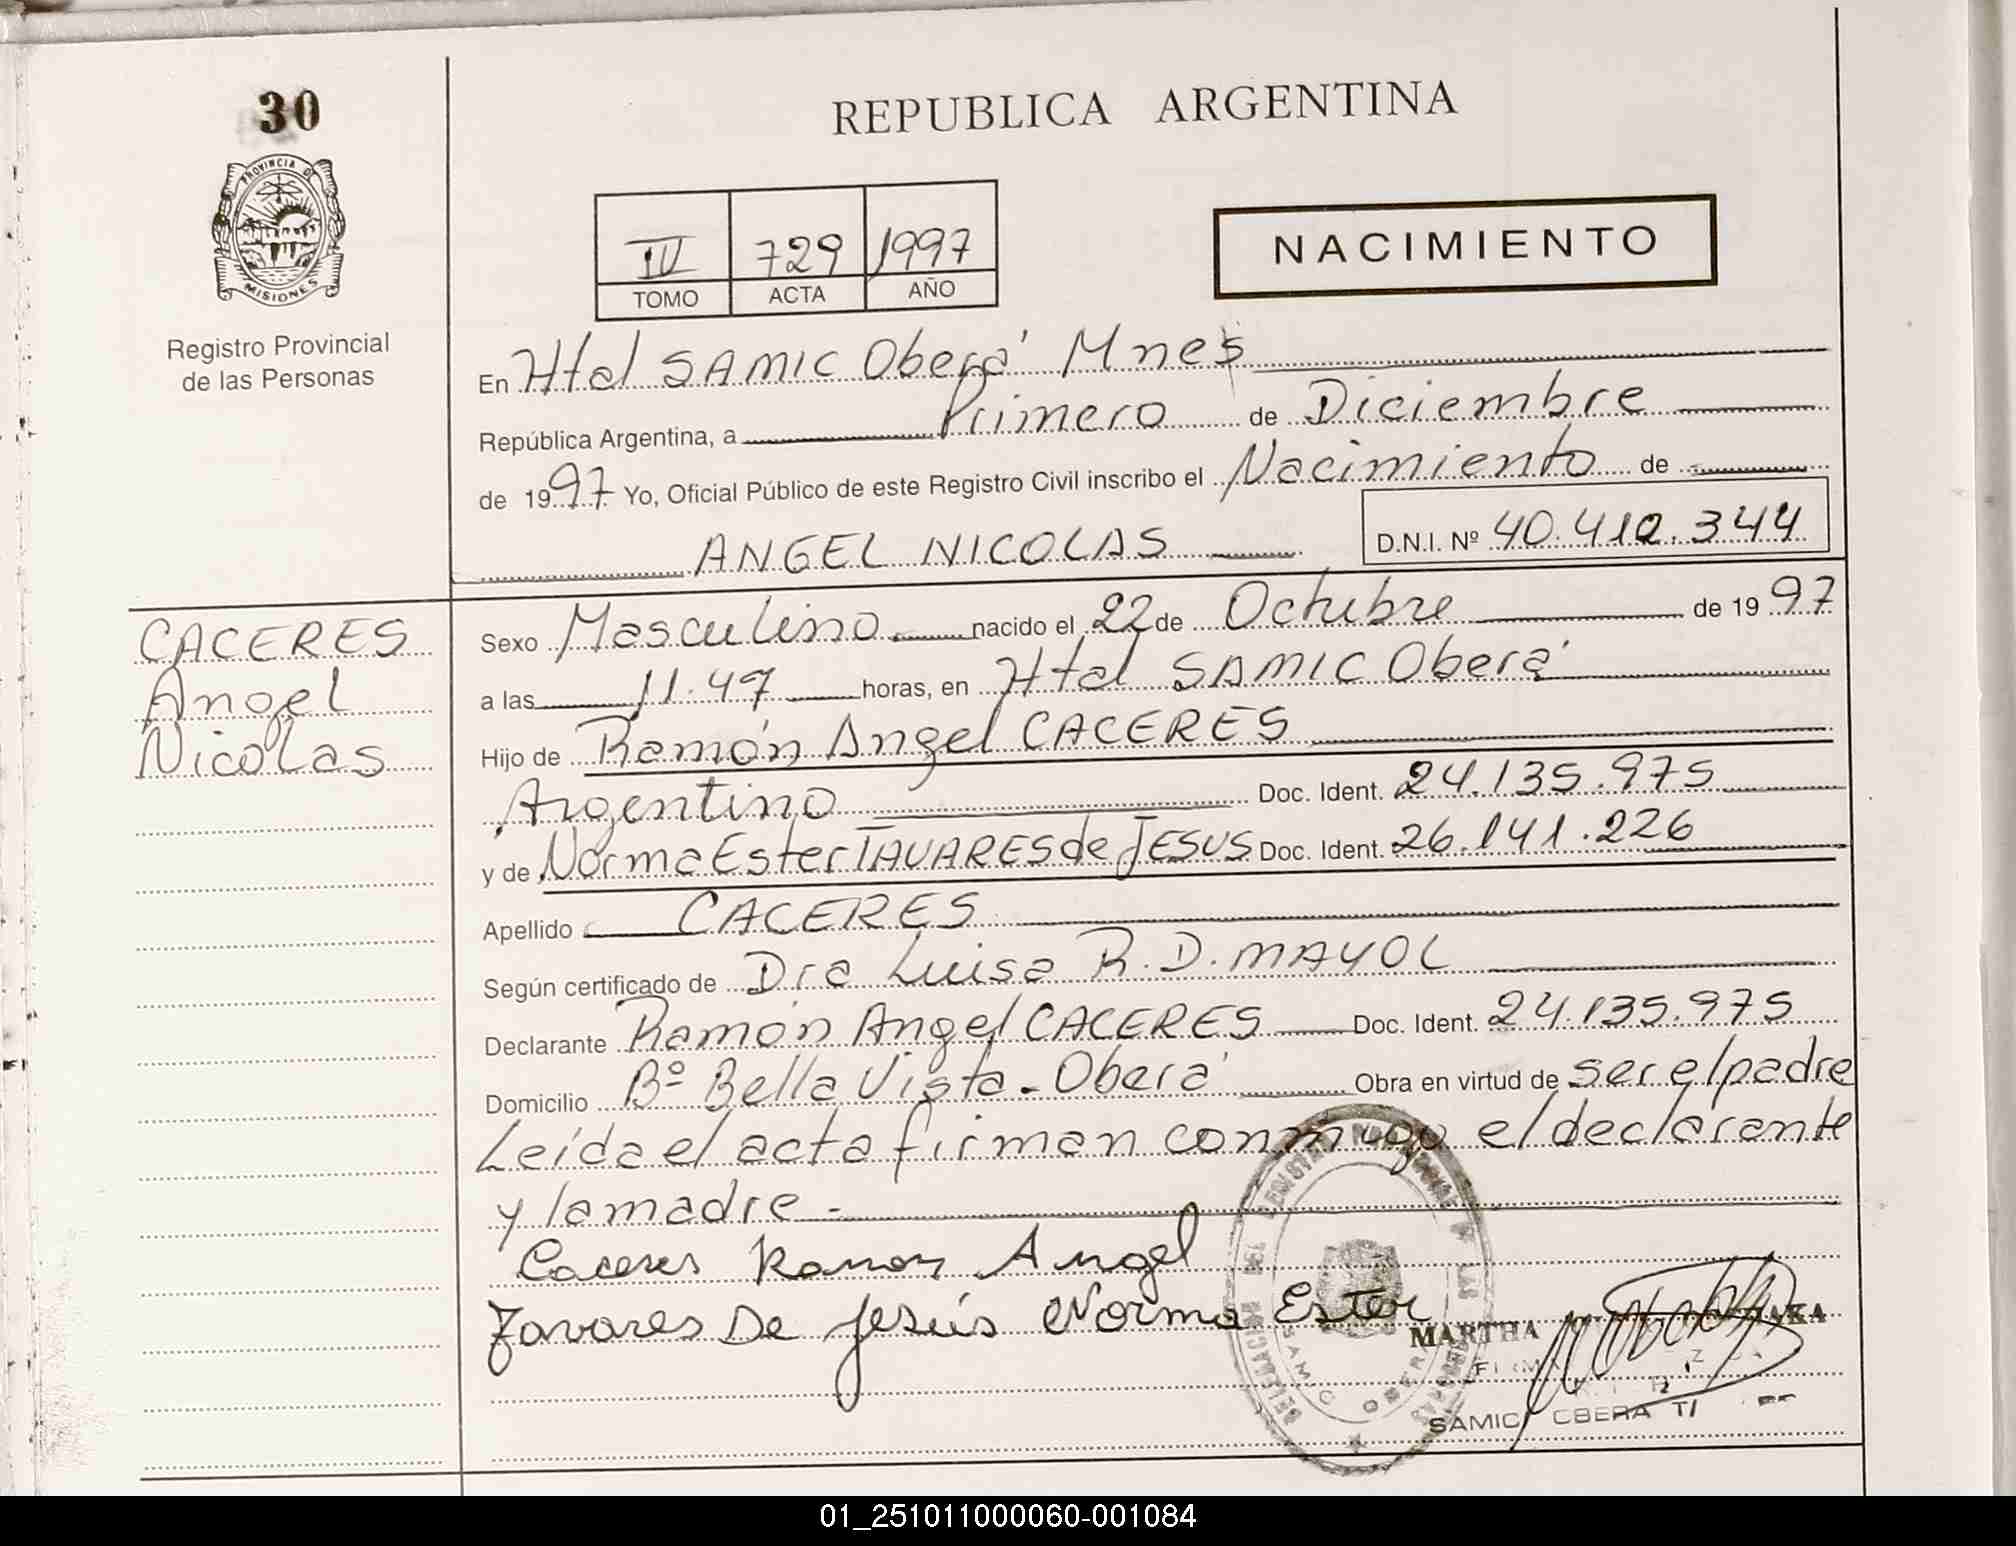 30
REPUBLICA ARGENTINA
PROVINCIA DE
MISIONES
Registro Provincial
de las Personas
IV 729 1997
TOMO ACTA AÑO
NACIMIENTO
En Htal SAMIC Oberá Mnes
República Argentina, a Primero de Diciembre
de 1997 Yo, Oficial Público de este Registro Civil inscribo el Nacimiento de
ANGEL NICOLAS D.N.I. Nº 40.412.344
CACERES
Angel
Nicolas
Sexo Masculino nacido el 22 de Octubre de 1997
a las 11.47 horas, en Htal SAMIC Oberá
Hijo de Ramón Angel CACERES
Argentino Doc. Ident. 24.135.975
y de Norma Ester TAVARES de JESUS Doc. Ident. 26.141.226
Apellido CACERES
Según certificado de Dra Luisa R.D. MAYOL
Declarante Ramón Angel CACERES Doc. Ident. 24.135.975
Domicilio Bº Bella Vista - Oberá Obra en virtud de ser el padre
Leída el acta firman conmigo el declarante
y la madre.-
Caceres Ramon Angel
Tavares De Jesús Norma Ester
MARTHA
SAMIC OBERA
01_251011000060-001084